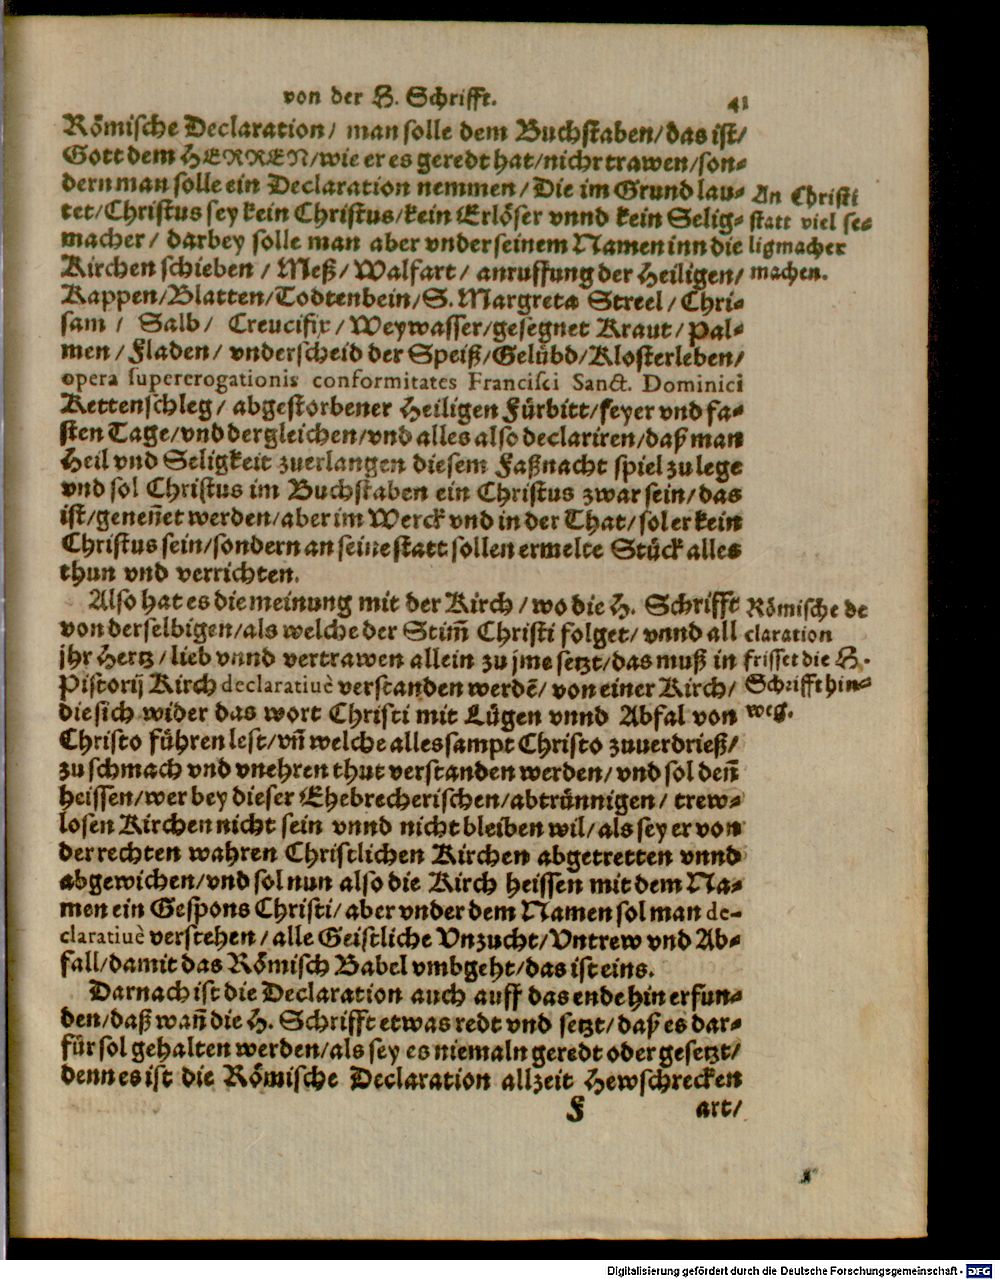 von der H. Schrifft. 41
Römische Declaration/ man solle dem Buchstaben/das ist/
Gott dem HERREN/wie er es geredt hat/nicht trawen/son-
dern man solle ein Declaration nemmen/Die im Grund lau-
tet/Christus sey kein Christus/kein Erlöser vnnd kein Selig-
macher/ darbey solle man aber vnder seinem Namen inn die
Kirchen schieben / Meß/Walfart/ anruffung der Heiligen/
Kappen/Blatten/Todtenbein/S. Margreta Streel/Chri-
sam / Salb/ Creucifix/Weywasser/gesegnet Kraut/Pal-
men/Fladen/ vnderscheid der Speiß/Gelübd/Klosterleben/
opera supererogationis conformitates Francisci Sanct. Dominici
Kettenschleg/ abgestorbener Heiligen Fürbitt/feyer vnd fa-
sten Tage/vnd dergleichen/vnd alles also declariren/daß man
Heil vnd Seligkeit zuerlangen diesem Faßnacht spiel zulege
vnd sol Christus im Buchstaben ein Christus zwar sein/das
ist/geneñet werden/aber im Werck vnd in der That/sol er kein
Christus sein/sondern an seine statt sollen ermelte Stück alles
thun vnd verrichten.
An Christi
statt viel se-
ligmacher
machen.
Also hat es die meinung mit der Kirch/wo die H. Schrifft
von derselbigen/als welche der Stim̃ Christi folget/ vnnd all
jhr Hertz/lieb vnnd vertrawen allein zu jme setzt/das muß in
Pistorij Kirch declaratiuè verstanden werdẽ/von einer Kirch/
die sich wider das wort Christi mit Lügen vnnd Abfal von
Christo führen lest/vñ welche alles sampt Christo zuuerdrieß/
zu schmach vnd vnehren thut verstanden werden/vnd sol deñ
heissen/wer bey dieser Ehebrecherischen/abtrünnigen/ trew-
losen Kirchen nicht sein vnnd nicht bleiben wil/als sey er von
der rechten wahren Christlichen Kirchen abgetretten vnnd
abgewichen/vnd sol nun also die Kirch heissen mit dem Na-
men ein Gespons Christi/aber vnder dem Namen sol man de-
claratiuè verstehen/alle Geistliche Vnzucht/Vntrew vnd Ab-
fall/damit das Römisch Babel vmbgeht/das ist eins.
Römische de
claration
frisset die H.
Schrifft hin-
weg.
Darnach ist die Declaration auch auff das ende hin erfun-
den/daß wañ die H. Schrifft etwas redt vnd setzt/daß es dar-
für sol gehalten werden/als sey es niemaln geredt oder gesetzt/
denn es ist die Römische Declaration allzeit Hewschrecken
F art/
Digitalisierung gefördert durch die Deutsche Forschungsgemeinschaft - DFG